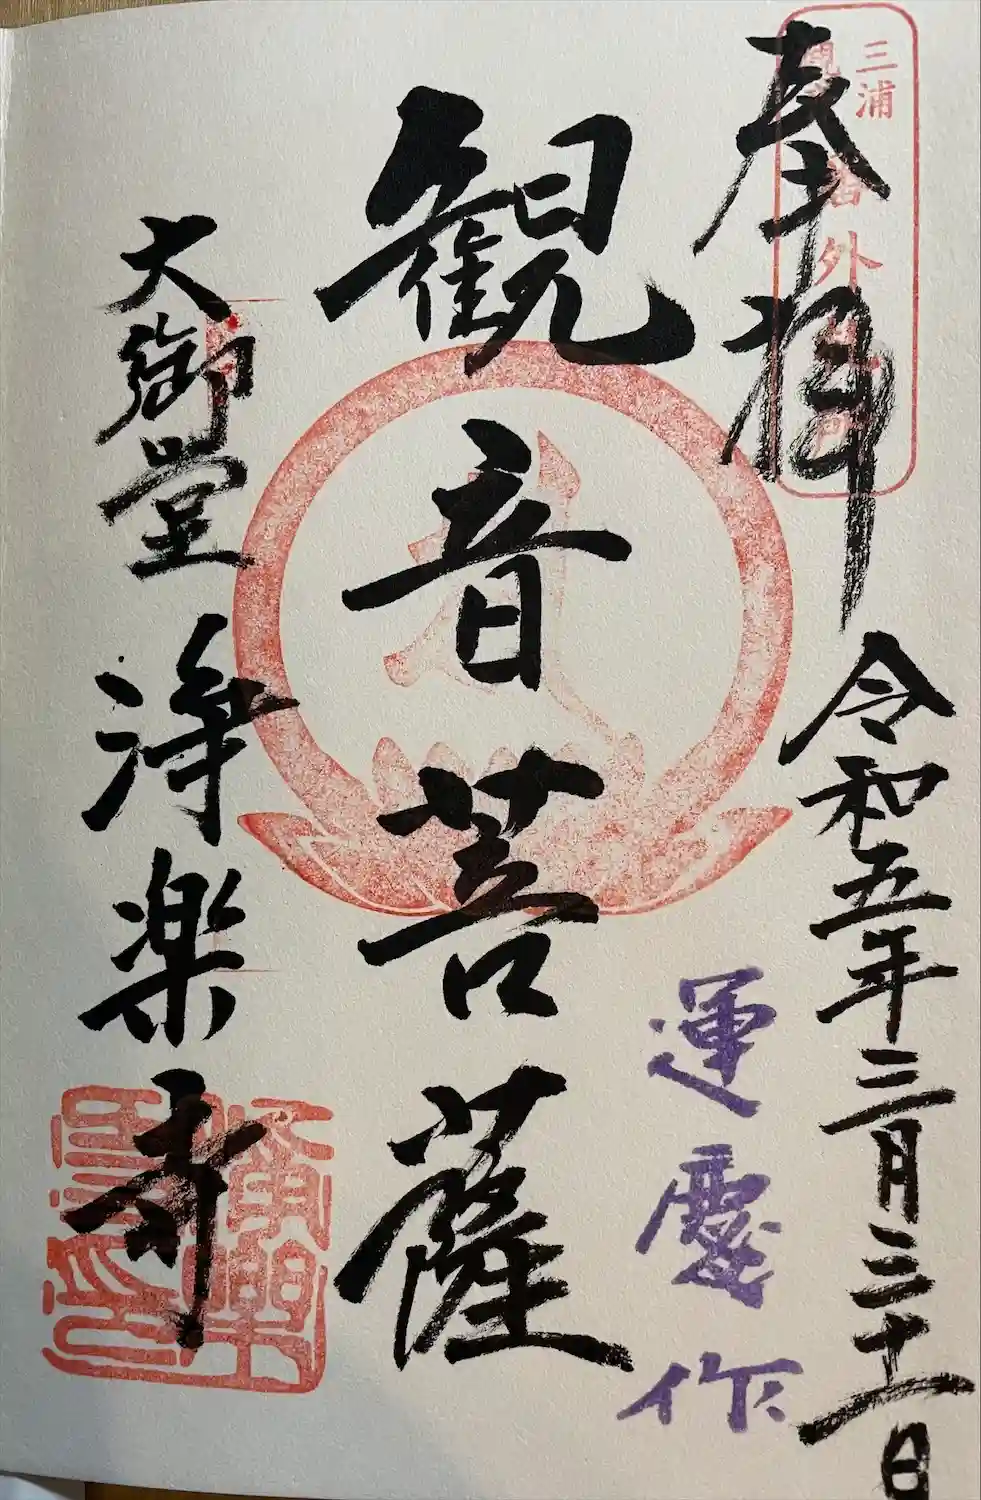 奉拝
三浦
番外
令和五年三月三十一日
運慶作
観音菩薩
大御堂
浄楽寺